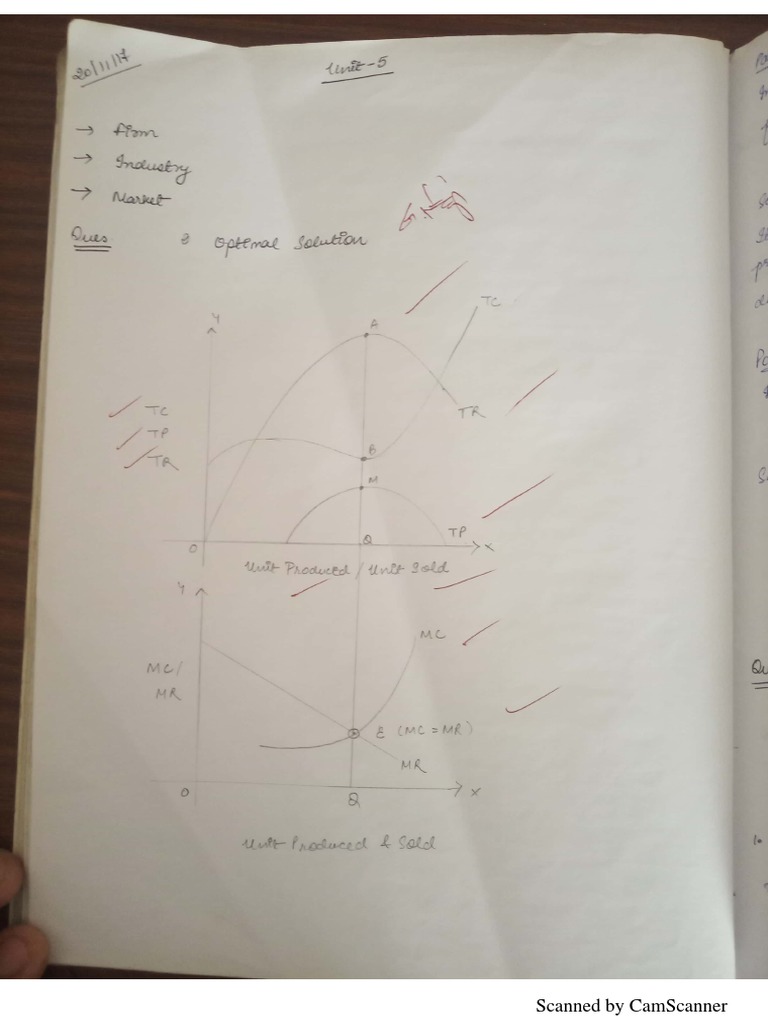 20/11/17
Unit-5
→ Firm
→ Industry
→ Market
Ques : Optimal Solution
Y
A
TC
TC
TP
TR
TR
B
M
TP
O
Q
X
Unit Produced / Unit Sold
Y
MC
MC/
MR
E (MC = MR)
MR
O
Q
X
Unit Produced & Sold
Qu
10
Scanned by CamScanner